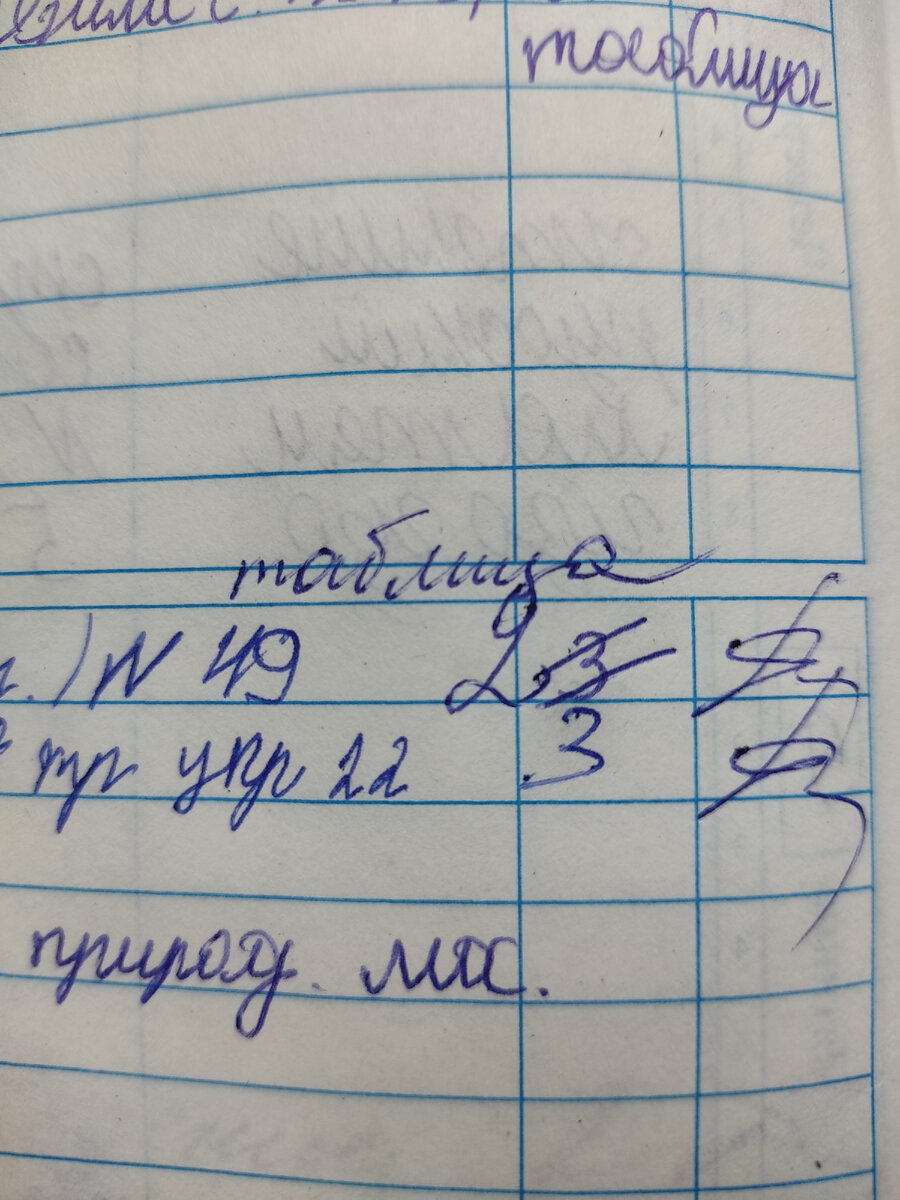 таблица
таблица
.) N 49 2 .3
тр упр 22 .3
природ. мас.